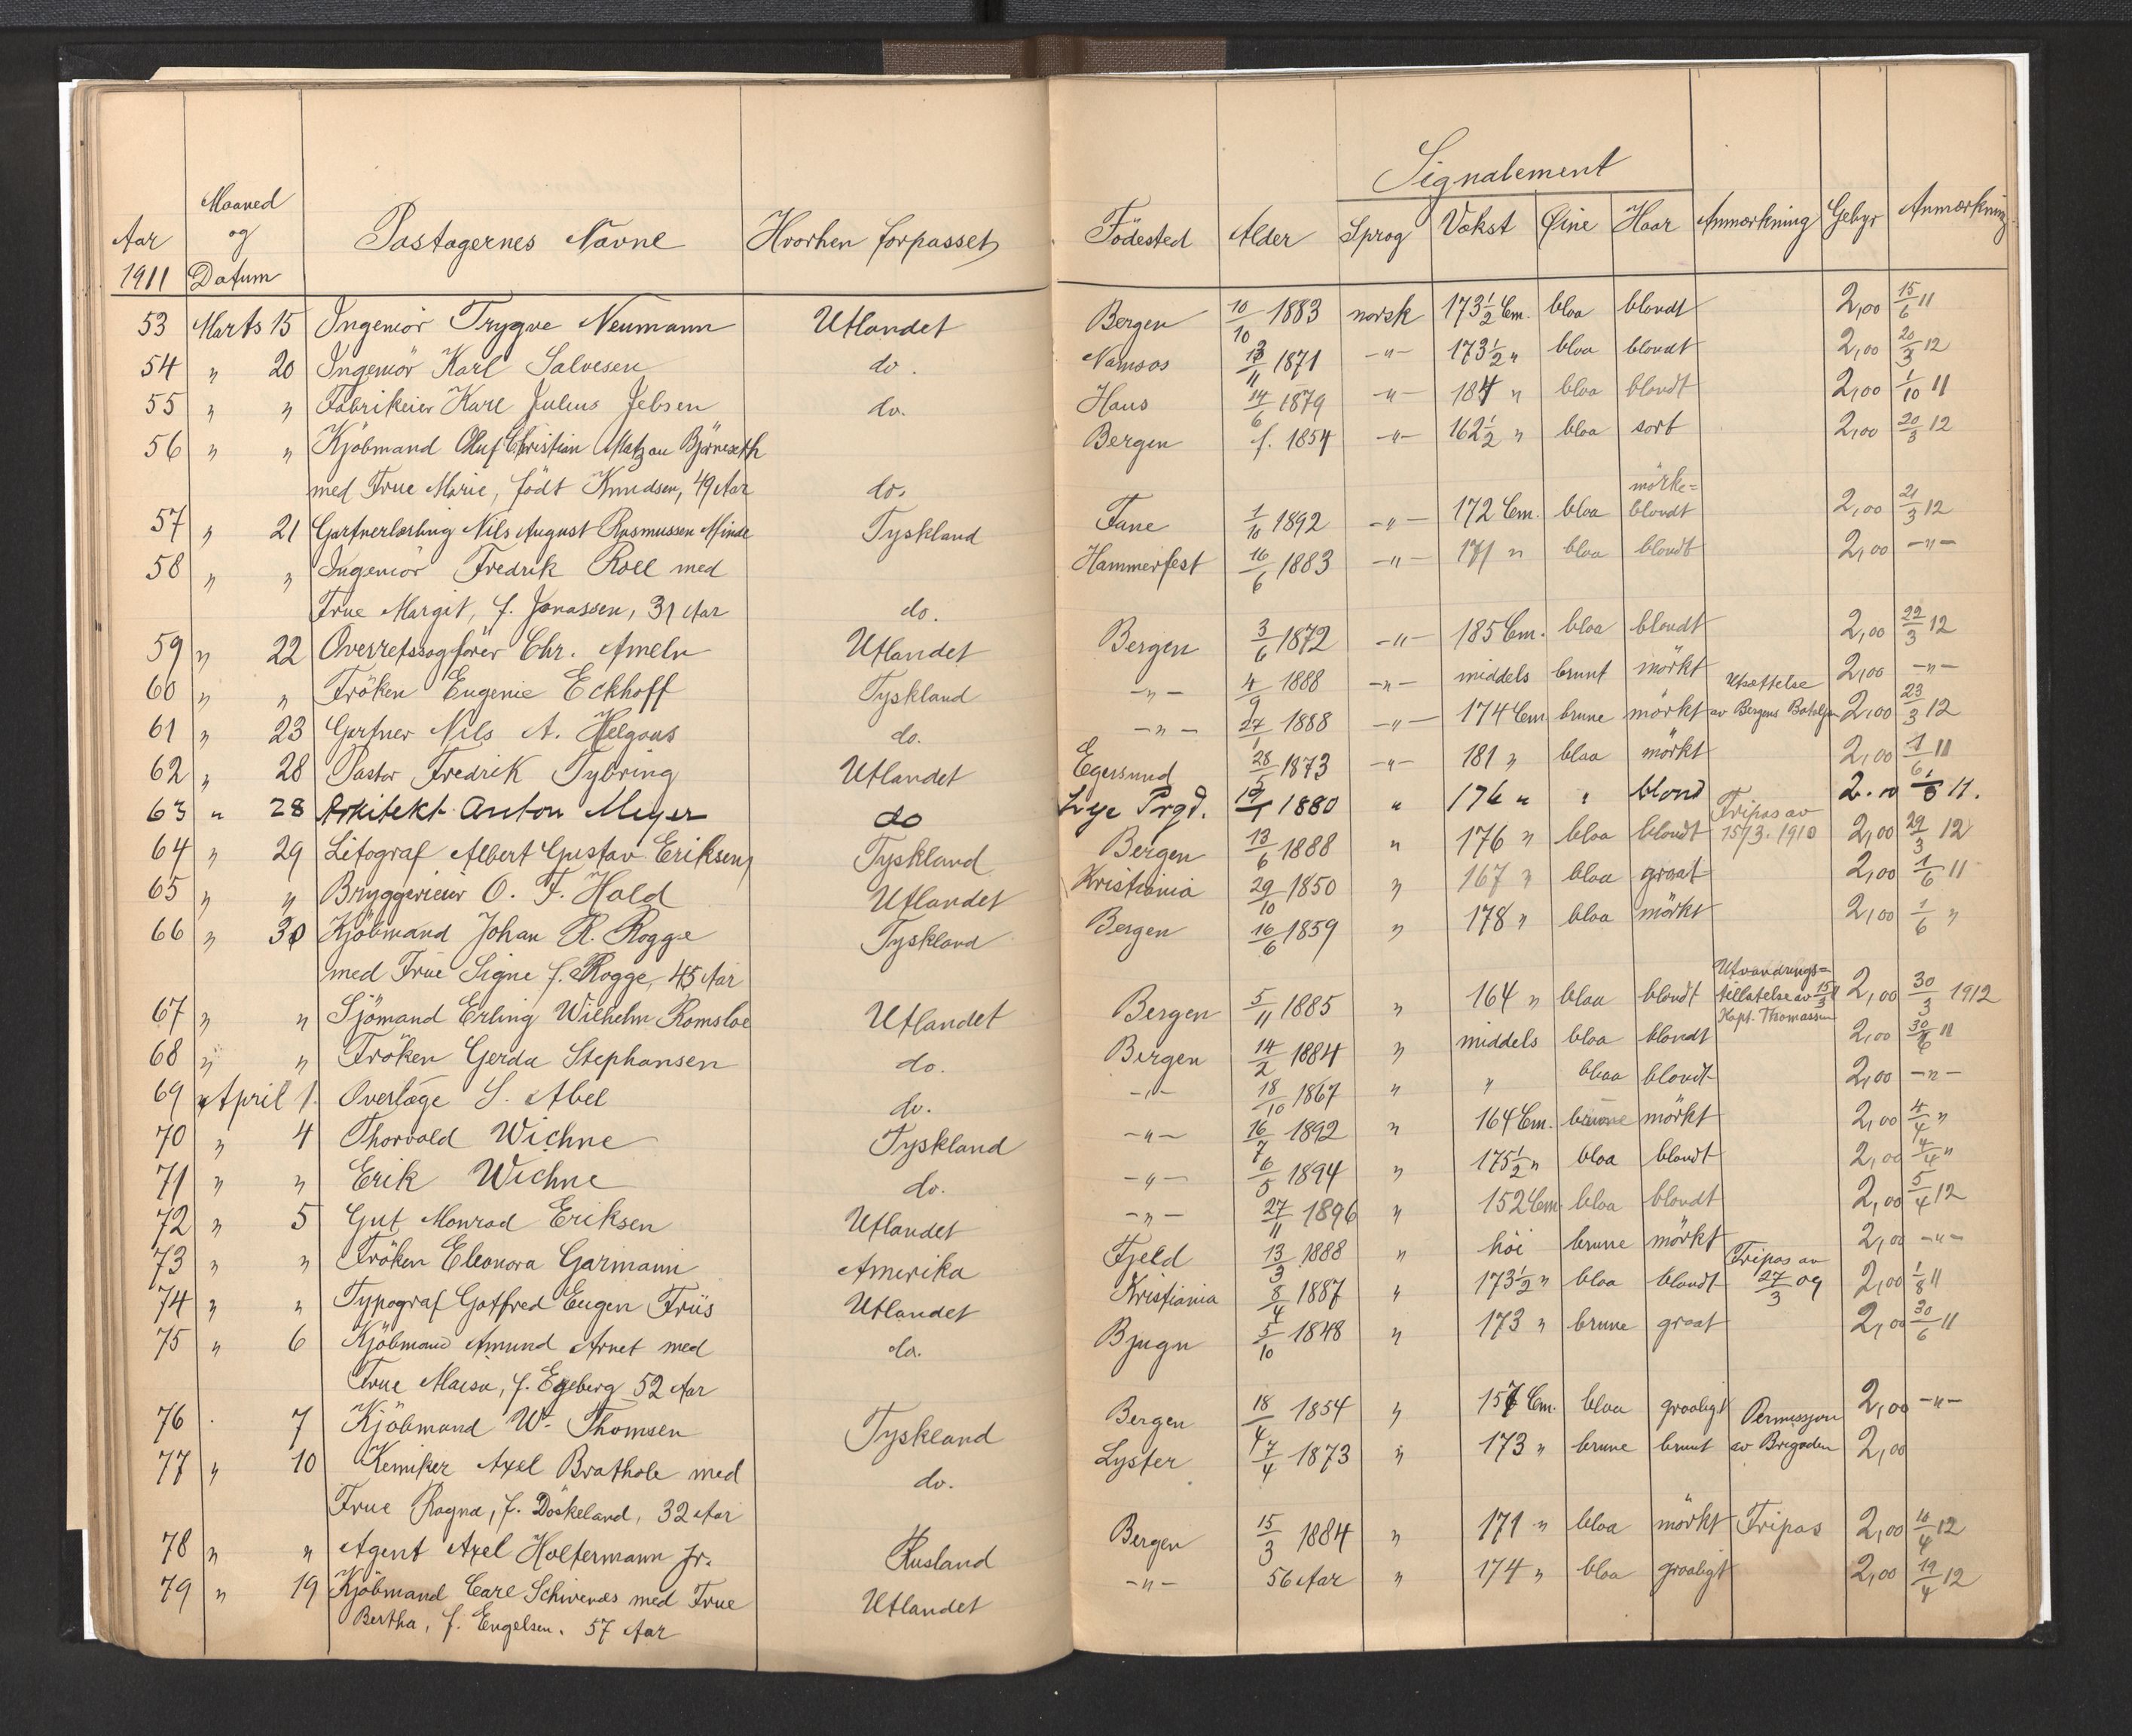 Signalement
Aar 1911 Maaned og Datum Pastagernes Navne Hvorhen forpasset Födested Alder Sprog Vækst Øine Haar Anmærkning Gebyr Anmærkning
53 Marts 15 Ingeniör Trygve Neumann Utlandet Bergen 10/10 1883 norsk 173 1/2 Cm. blaa blondt 2,00 15/6 11
54 " 20 Ingeniör Karl Salvesen do. Namsos 1871 -"- 173 1/2 " blaa blondt 2,00 20/3 12
55 " " Fabrikeier Karl Julius Jebsen do. Haus 14/6 1879 -"- 184 " blaa blondt 2,00 1/10 11
56 " " Kjöbmand Oluf Christian Matzau Björneseth Bergen f. 1854 -"- 162 1/2 " blaa sort 2,00 20/3 12
med Frue Marie, födt Knudsen, 49 Aar do.
57 " 21 Gartnerlærling Nils August Rasmussen Minde Tyskland Fane 1/10 1892 -"- 172 Cm. blaa mörke= blondt 2,00 21/3 12
58 " " Ingeniör Fredrik Roll med Hammerfest 16/6 1883 -"- 171 " blaa blondt 2,00 -"-
Frue Margit, f. Jonassen, 31 Aar do.
59 " 22 Overretssagförer Chr. Ameln Utlandet Bergen 3/6 1872 -"- 185 Cm. blaa blondt 2,00 22/3 12
60 " " Fröken Eugenie Eckhoff Tyskland -"- 4/9 1888 -"- middels brunt mörkt 2,00 -"-
61 " 23 Gartner Nils A. Helgaas do. -"- 27/1 1888 -"- 174 Cm brune mörkt Utsættelse av Bergens Bataljon 2,00 23/3 12
62 " 28 Pastor Fredrik Tybring Utlandet Egersund 28/5 1873 -"- 181 " blaa mörkt 2,00 1/6 11
63 " 28 Arkitekt Anton Meyer do Lye Prgd. 1880 " 176 " " blond 2.00 11.
64 " 29 Litograf Albert Gustav Eriksen Tyskland Bergen 13/6 1888 " 176 " blaa blondt Fripas av 15/3. 1910 2,00 29/3 12
65 " " Bryggerieier O. F. Hald Utlandet Kristiania 29/10 1850 " 167 " blaa graat 2,00 1/6 11
66 " 30 Kjöbmand Johan R. Rogge Tyskland Bergen 16/6 1859 " 178 " blaa mörkt 2,00 1/6 "
med Frue Signe f. Rogge, 45 Aar
67 " " Sjömand Erling Wilhelm Romslo Utlandet Bergen 5/11 1885 " 164 " blaa blondt Utvandrings= tillatelse av 15/3 Kapt. Thomassen 2,00 30/3 1912
68 " " Fröken Gerda Stephansen do. Bergen 14/2 1884 " middels blaa blondt 2,00 30/6 11
69 April 1. Overlæge S. Abel do. -"- 18/10 1867 " " blaa blondt 2,00 -"-
70 " 4 Thorvald Wichne Tyskland -"- 16/7 1892 " 164 Cm. brune mörkt 2,00 4/4 "
71 " " Erik Wichne do. -"- 6/5 1894 " 175 1/2 " blaa blondt 2,00 4/4 "
72 " 5 Gut Monrad Eriksen Utlandet -"- 27/11 1896 " 152 Cm blaa blondt 2,00 5/4 12
73 " " Fröken Eleonora Garmann Amerika Fjeld 13/3 1888 " höi brune mörkt 2,00 -"-
74 " " Typograf Gotfred Eugen Friis Utlandet Kristiania 8/4 1887 " 173 1/2 " blaa blondt Fripas av 27/3 09 2,00 1/8 11
75 " 6 Kjöbmand Amund Arnet med do. Bjugn 5/10 1848 " 173 " brune graat 2,00 30/6 11
Frue Maisa, f. Egeberg 52 Aar
76 . 7 Kjöbmand W. Thomsen Tyskland Bergen 18/4 1854 " 157 Cm. blaa graaligt 2,00 -"-
77 " 10 Kemiker Axel Brathole med do. Lyster 17/4 1873 " 173 " brune brunt Permissjon av Brigaden 2,00
Frue Ragna, f. Döskeland, 32 Aar
78 " " Agent Axel Holtermann jr. Rusland Bergen 15/3 1884 " 171 " blaa mörkt Fripas 2,00 10/4 12
79 " 19 Kjöbmand Carl Schwends med Frue Utlandet -"- 56 Aar " 174 " blaa graaligt 2,00 19/4 12
Bertha, f. Engelsen. 57 Aar